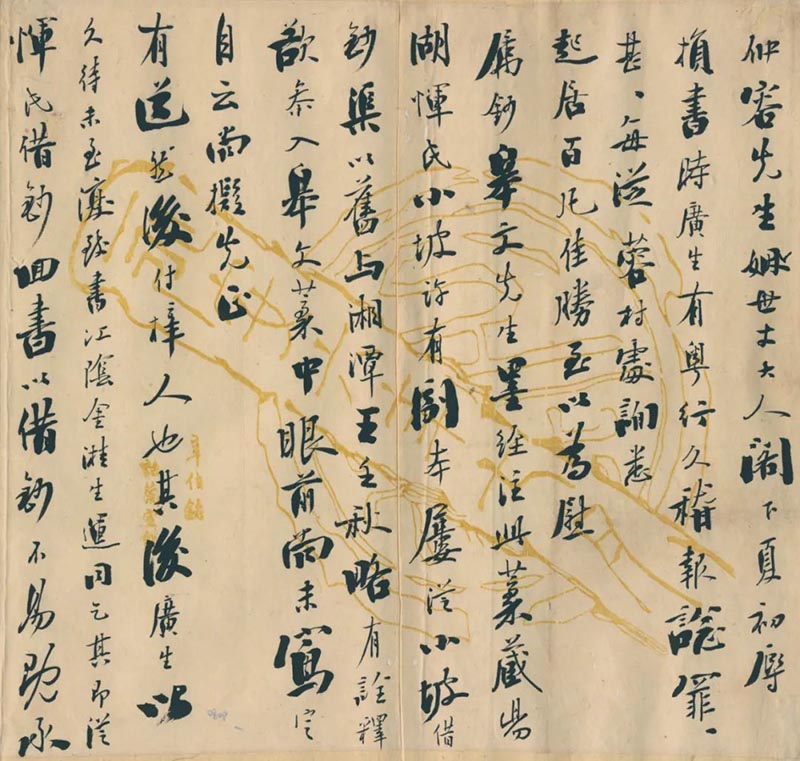 仲容先生姻世丈大人閣下夏初辱
損書時廣生有粵行久稽報謝罪、
甚、每從蓉村處詢悉
起居百凡佳勝至以為慰
屬鈔皋文先生墨經注此稾藏陽
湖惲氏小坡許有副本屢從小坡借
鈔渠以舊与湘潭王壬秋略有詮釋
欲參入皋文稾中眼前尚未寫定
自云尚擬先正
有道然後付梓人也其後廣生以
久待未至復致書江陰金溎生運同乞其即從
惲氏借鈔回書以借鈔不易既承